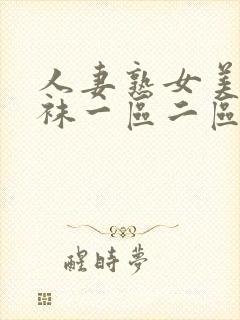 人妻熟女美
袜一區二區
醒時夢